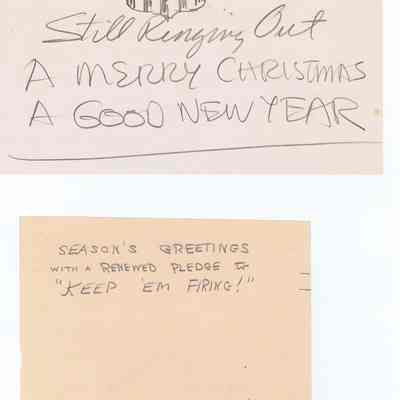 Still Ringing Out
A MERRY CHRISTMAS
A GOOD NEW YEAR
SEASON'S GREETINGS
WITH A RENEWED PLEDGE to
"KEEP 'EM FIRING!"